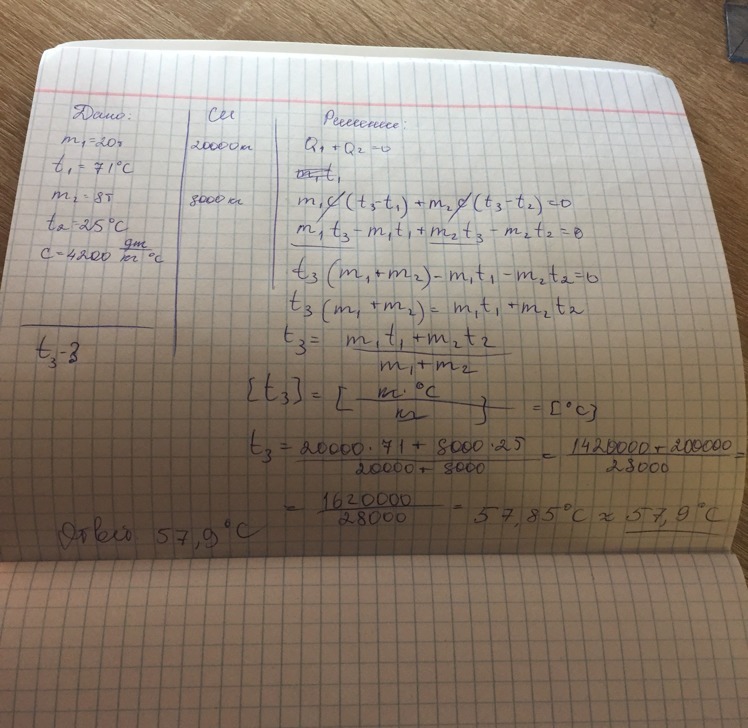 Дано:
m₁=20т
t₁=71°C
m₂=8т
t₂=25°C
C=4200 дж/кг °C
t₃-?
СИ
20000кг
8000кг
Решение:
Q₁+Q₂=0
m₁t₁
m₁c(t₃-t₁)+m₂c(t₃-t₂)=0
m₁t₃-m₁t₁+m₂t₃-m₂t₂=0
t₃(m₁+m₂)-m₁t₁-m₂t₂=0
t₃(m₁+m₂)=m₁t₁+m₂t₂
t₃= (m₁t₁+m₂t₂)/(m₁+m₂)
[t₃]=[кг·°C/кг]=[°C]
t₃= (20000·71+8000·25)/(20000+8000) = (1420000+200000)/28000 =
= 1620000/28000 = 57,85°C ≈ 57,9°C
Ответ 57,9°C